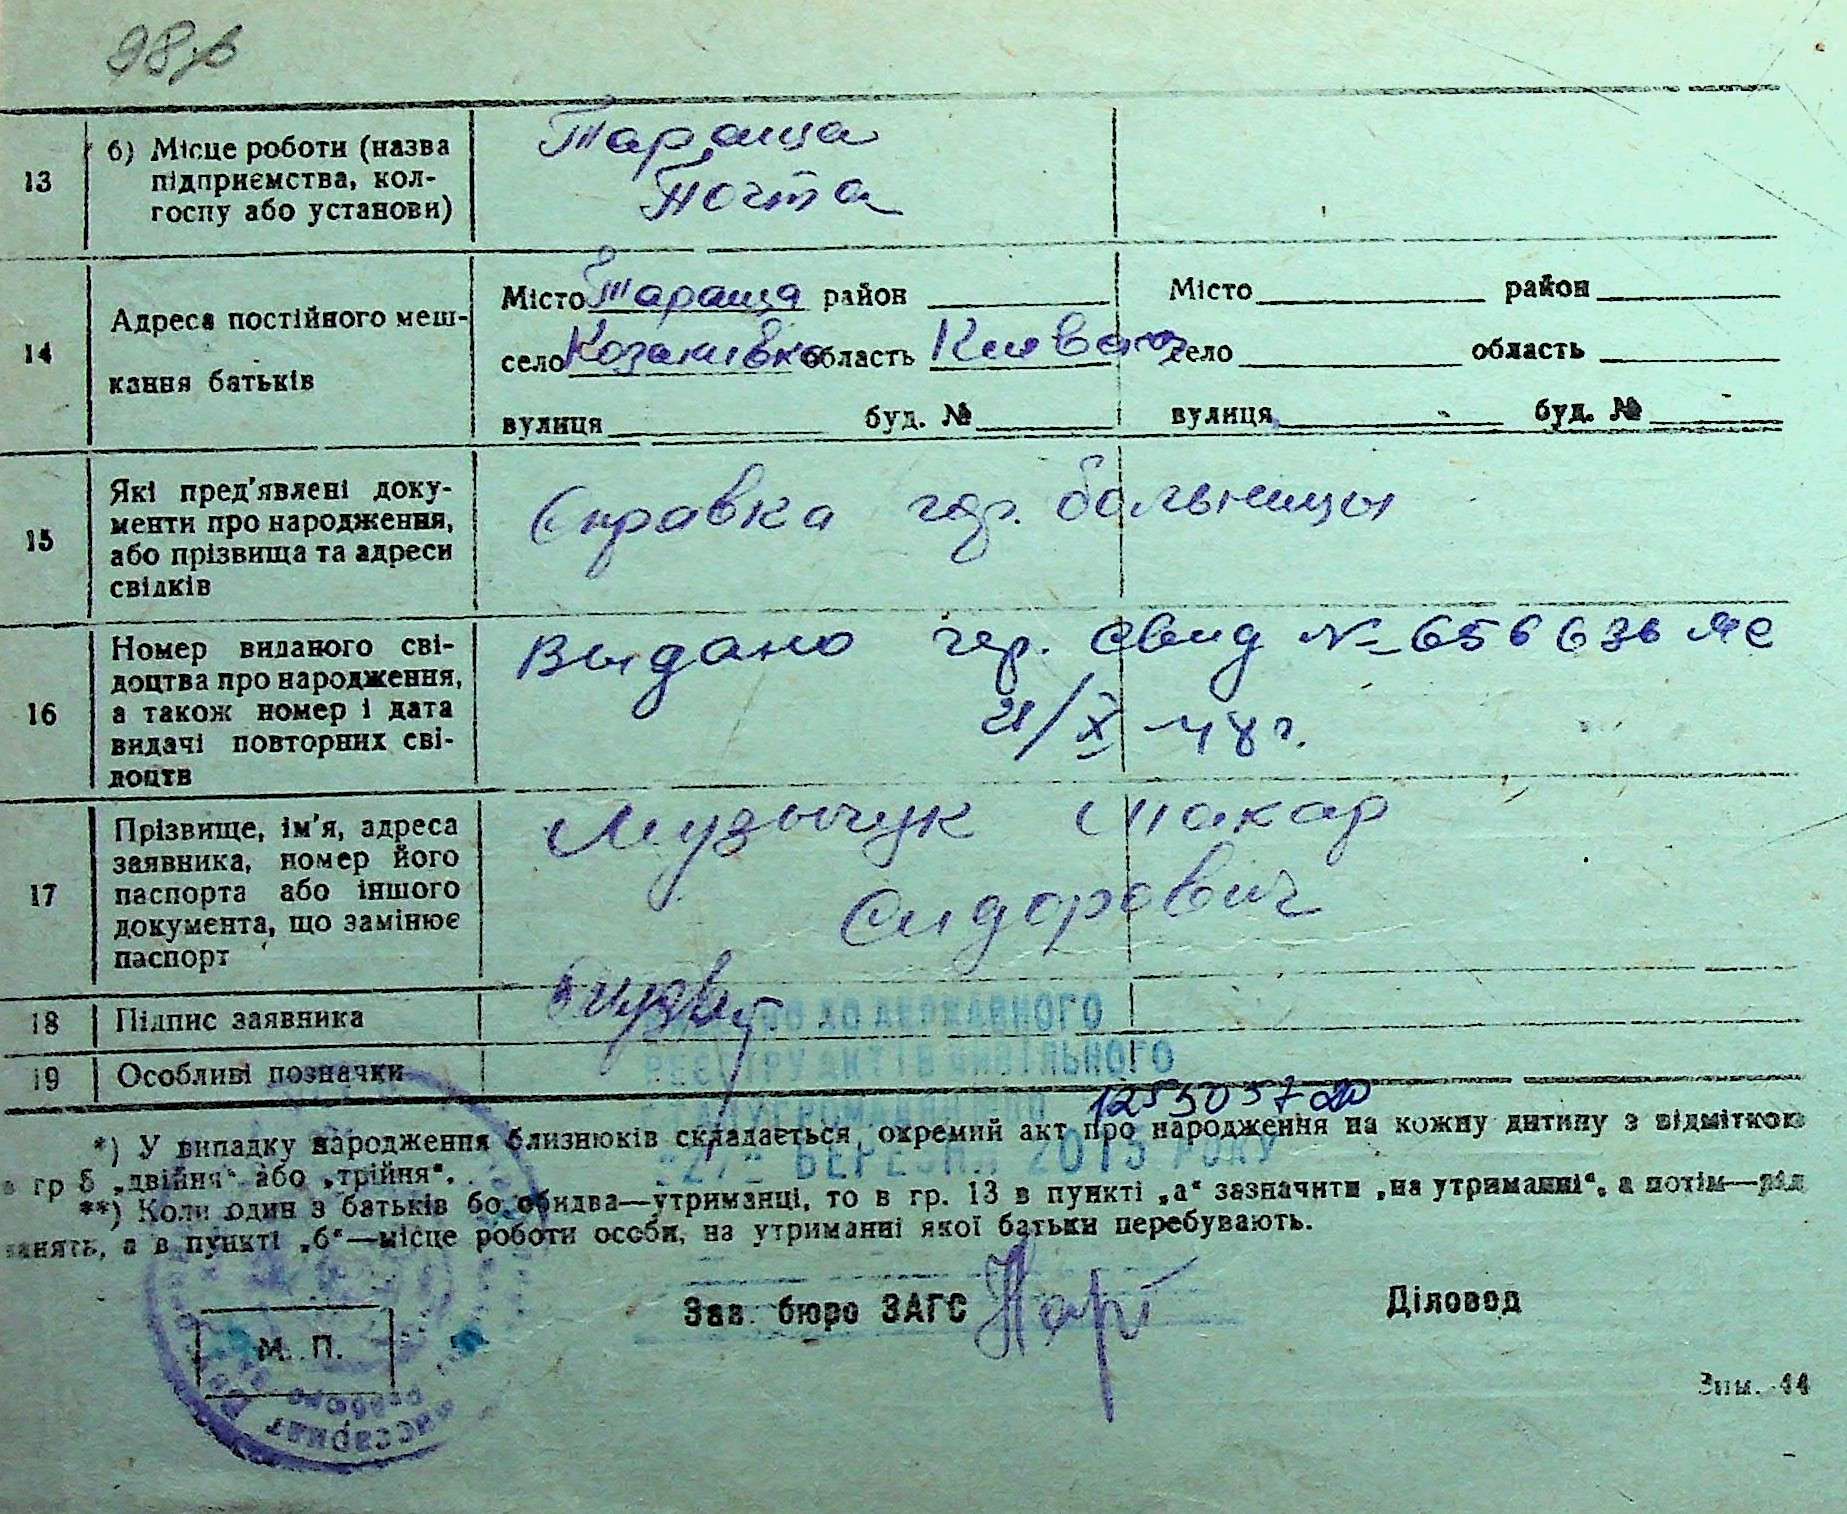 98зв
13 б) Місце роботи (назва підприємства, колгоспу або установи)
Тараща
Почта
14 Адреса постійного мешкання батьків
Місто Тараща район Місто район
село Козакивка область Киевск село область
вулиця буд. № вулиця буд. №
15 Які пред'явлені документи про народження, або прізвища та адреси свідків
Справка гор. больницы
16 Номер виданого свідоцтва про народження, а також номер і дата видачі повторних свідоцтв
Выдано гер. свид № 656636
21/X 48 г.
17 Прізвище, ім'я, адреса заявника, номер його паспорта або іншого документа, що замінює паспорт
Музычук Макар
Сидорович
18 Підпис заявника
ДО ДЕРЖАВНОГО
РЕЄСТРУ АКТІВ ЦИВІЛЬНОГО
19 Особливі позначки
СТАНУ ГРОМАДЯН
БЕРЕЗНЯ 2015 РОКУ
*) У випадку народження близнюків складається окремий акт про народження на кожну дитину з відміткою
в гр 5 „двійня“ або „трійня“.
**) Коли один з батьків бо обидва—утриманці, то в гр. 13 в пункті „а“ зазначити „на утриманні“, а потім—рід
занять, а в пункті „б“—місце роботи особи, на утриманні якої батьки перебувають.
Зав. бюро ЗАГС Діловод
М. П.
Зам. 44